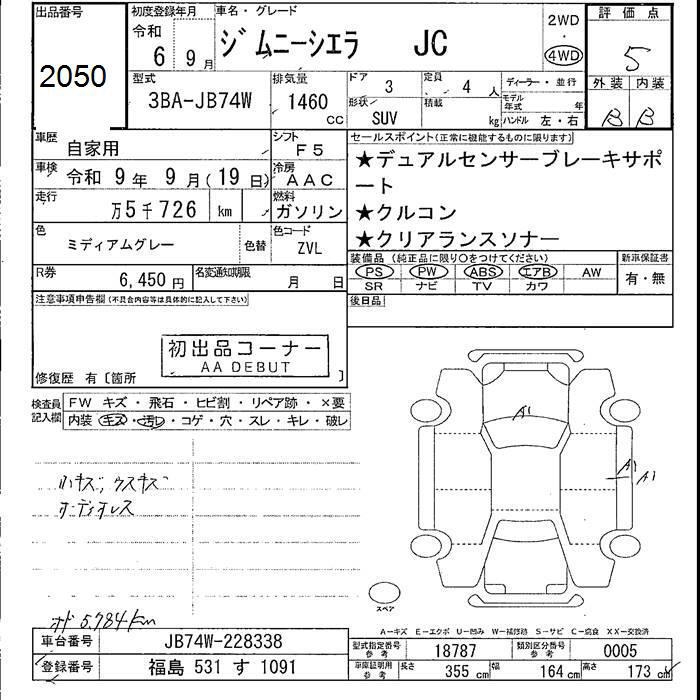 出品番号
2050
初度登録年月
令和
6 9月
車名・グレード
ジムニーシエラ JC
2WD
・
4WD
評価点
5
外装 内装
B B
型式
3BA-JB74W
排気量
1460
cc
ドア
3
定員
4 人
形状
SUV
積載
kg
ディーラー・並行
モデル
年式
年
ハンドル 左・右
車歴
自家用
シフト
F5
車検
令和 9年 9月(19日)
冷房
AAC
走行
万5千726 km
燃料
ガソリン
色
ミディアムグレー
色替
色コード
ZVL
R券
6,450円
名変通知期限
月 日
セールスポイント(正常に機能するものに限ります)
★デュアルセンサーブレーキサポ
ート
★クルコン
★クリアランスソナー
装備品 (純正品に限り○をつけてください)
PS PW ABS エアB AW
SR ナビ TV カワ
新車保証書
有・無
後日品
注意事項申告欄(不具合内容等は具体的に記入して下さい)
初出品コーナー
AA DEBUT
修復歴 有〔箇所 〕
検査員
記入欄
FW キズ・飛石・ヒビ割・リペア跡・×要
内装 キズ・汚レ・コゲ・穴・スレ・キレ・破レ
小キズ、ウスキズ
オーディオレス
オド 5,784km
A1
A1
A1
スペア
A-キズ E-エクボ U-凹み W-補修跡 S-サビ C-腐食 XX-交換済
車台番号
JB74W-228338
登録番号
福島 531 す 1091
型式指定番号
参考
18787
類別区分番号
参考
0005
車庫証明用
参考
長さ
355 cm
幅
164 cm
高さ
173 cm